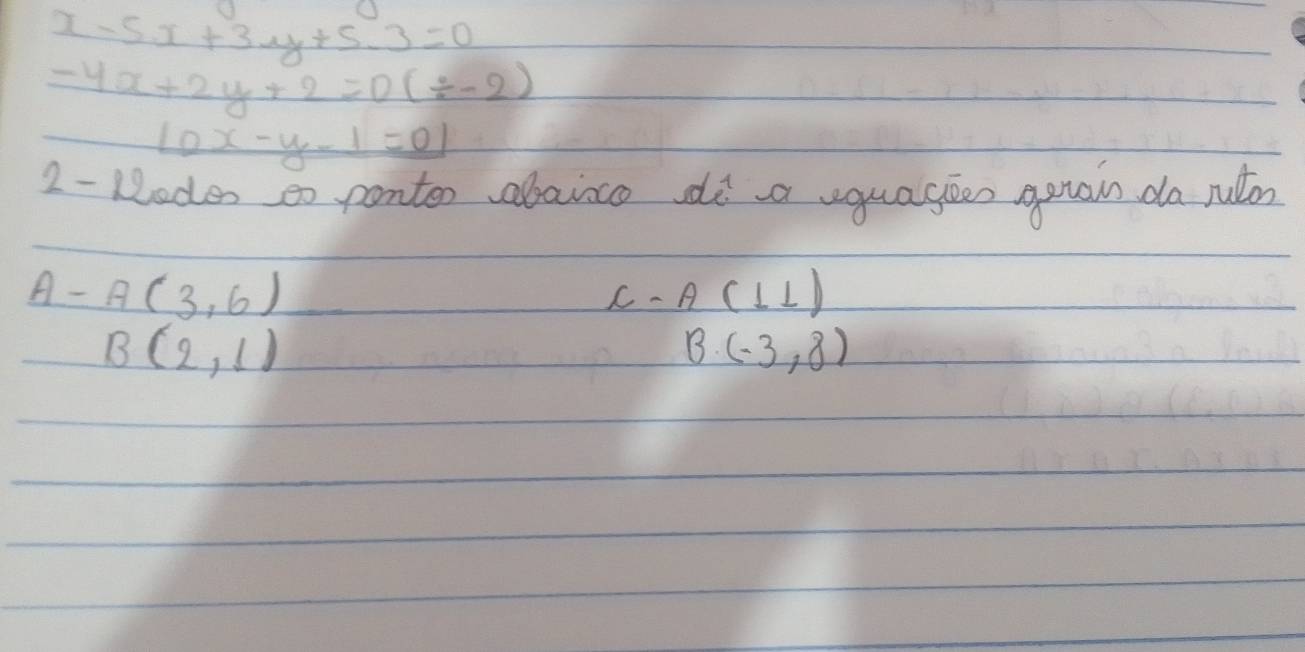 x-5x+3y+5-3=0
-4x+2y+2=0(÷-2)
10x-y-1=0|
2-Dados os pontos abaixo dê a equações gerais da retas
A-A(3,6)
B(2,1)
C-A(11)
B.(-3,8)